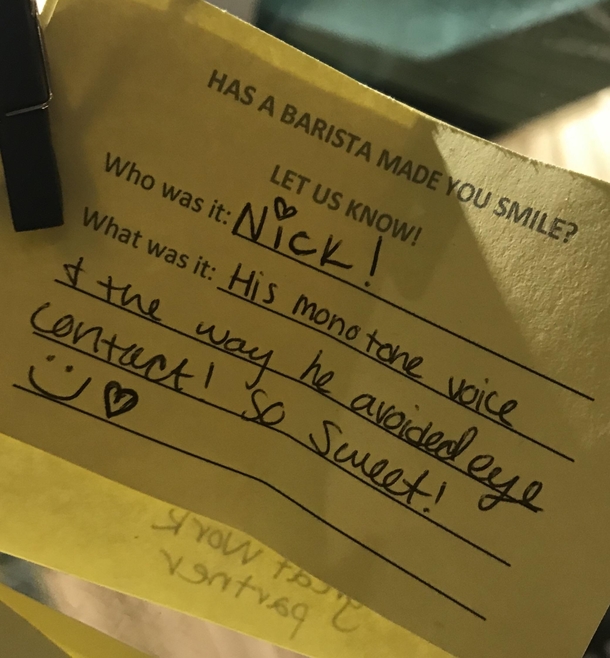 HAS A BARISTA MADE YOU SMILE?
LET US KNOW!
Who was it: Nick!
What was it: His monotone voice
& the way he avoided eye
contact! So Sweet!
great work
partner